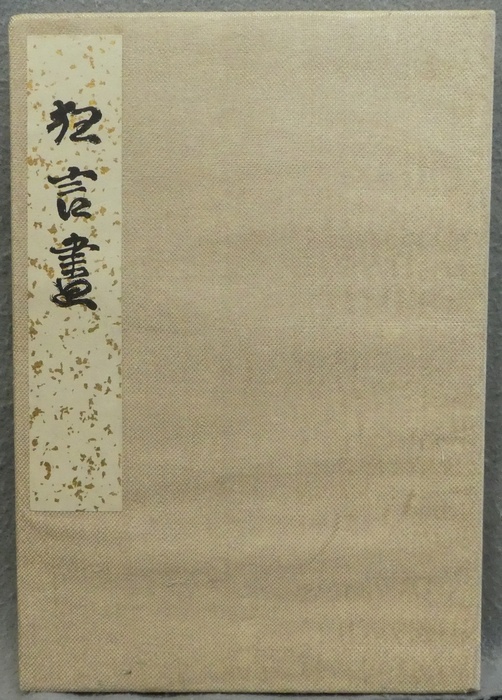 狂言畫